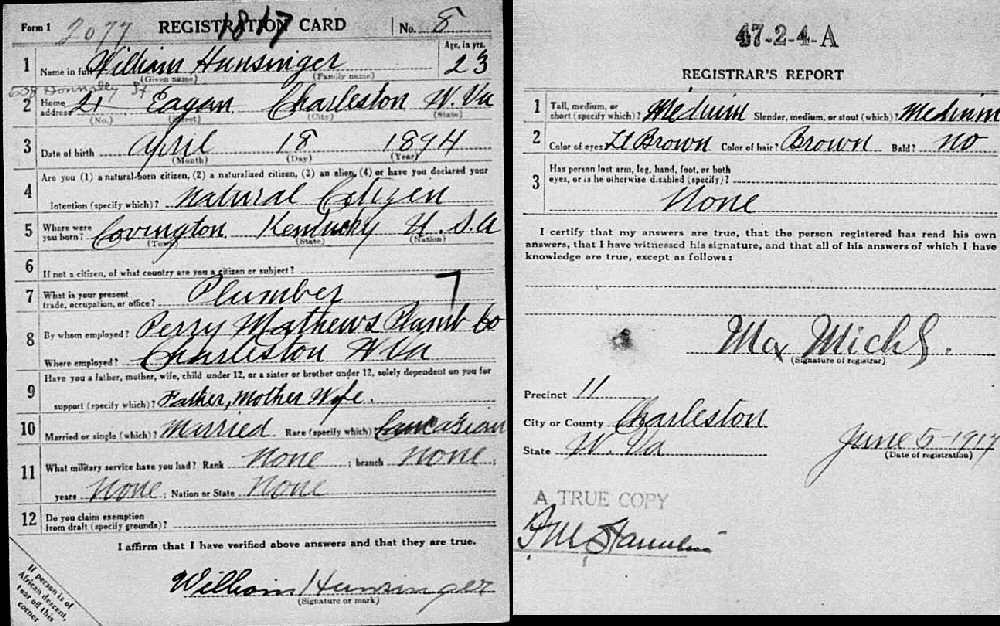 Form 1 2077 REGISTRATION CARD 1817 No. 8
1 Name in full William Hunsinger Age, in yrs. 23
(Given name) (Family name)
Donnally St
2 Home address 21 Eagan Charleston W. Va
(No.) (Street) (City) (State)
3 Date of birth April 18 1894
(Month) (Day) (Year)
4 Are you (1) a natural-born citizen, (2) a naturalized citizen, (3) an alien, (4) or have you declared your
intention (specify which)? Natural Citizen
5 Where were you born? Covington Kentucky U.S.A
(Town) (State) (Nation)
6 If not a citizen, of what country are you a citizen or subject?
7 What is your present trade, occupation, or office? Plumber 7
8 By whom employed? Perry Mathews Plumb Co
Where employed? Charleston W Va
9 Have you a father, mother, wife, child under 12, or a sister or brother under 12, solely dependent on you for
support (specify which)? Father, Mother Wife.
10 Married or single (which)? Married Race (specify which)? Caucasian
11 What military service have you had? Rank None ; branch None ;
years None ; Nation or State None
12 Do you claim exemption from draft (specify grounds)?
I affirm that I have verified above answers and that they are true.
William Hunsinger
(Signature or mark)
If person is of
African descent,
tear off this
corner
47-2-4-A
REGISTRAR'S REPORT
1 Tall, medium, or short (specify which)? Medium Slender, medium, or stout (which)? Medium
2 Color of eyes Lt Brown Color of hair? Brown Bald? No
3 Has person lost arm, leg, hand, foot, or both
eyes, or is he otherwise disabled (specify)?
None
I certify that my answers are true, that the person registered has read his own
answers, that I have witnessed his signature, and that all of his answers of which I have
knowledge are true, except as follows:
Max Michl.
(Signature of registrar)
Precinct 11
City or County Charleston
State W. Va
June 5-1917
(Date of registration)
A TRUE COPY